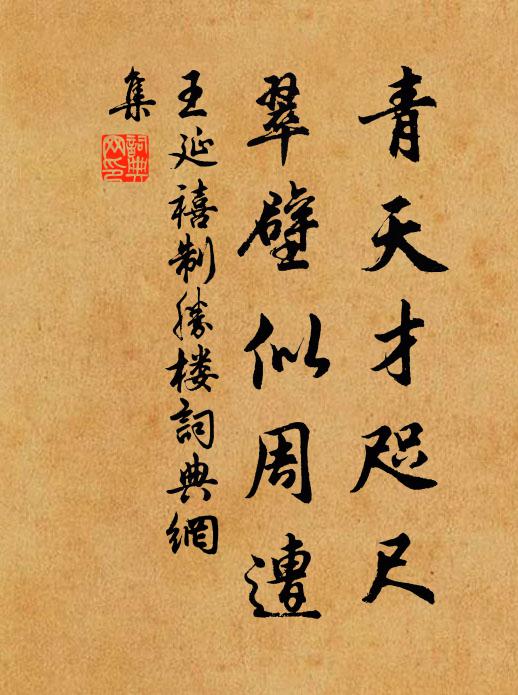 青天才咫尺
翠壁似周遭
王延禧制勝楼詞典網
集
詞典
网印